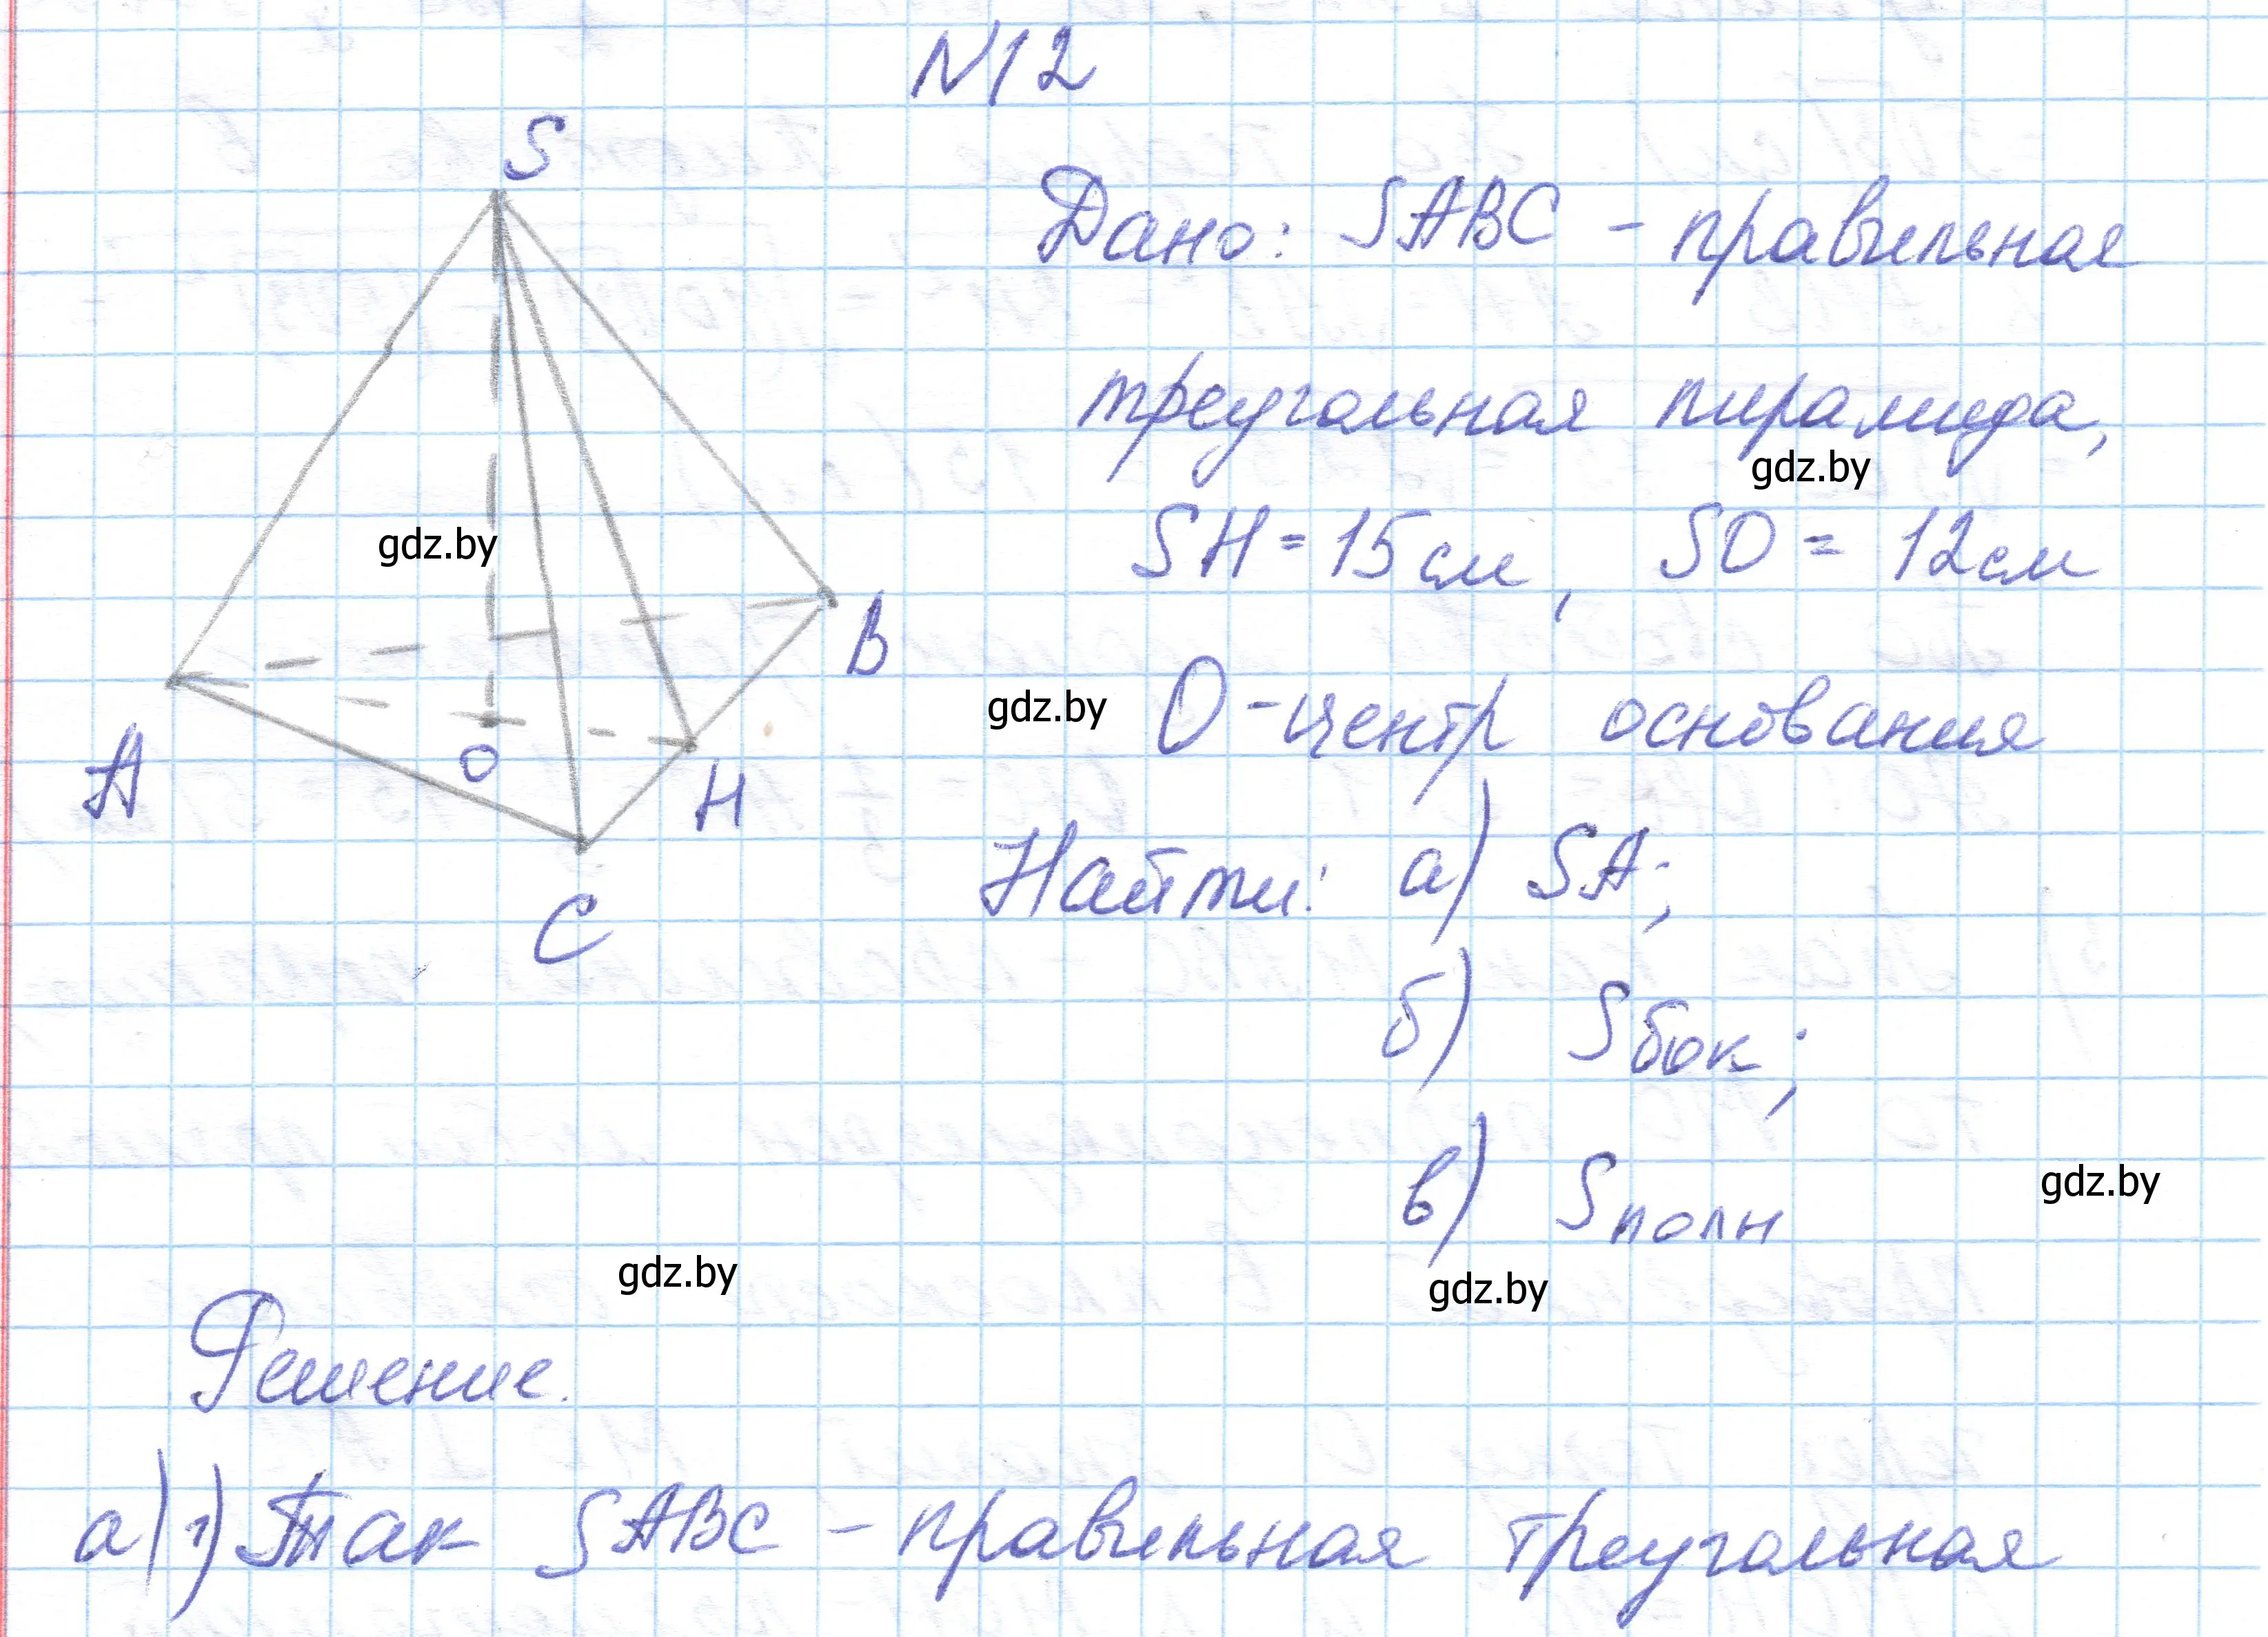 N12
S
Дано: SABC – правильная
треугольная пирамида,
gdz.by
SH = 15 см, SO = 12 см
gdz.by
B
gdz.by
O – центр основания
A
O
H
Найти: а) SA;
C
б) Sбок;
в) Sполн
gdz.by
gdz.by
gdz.by
Решение.
а) 1) Так SABC – правильная треугольная